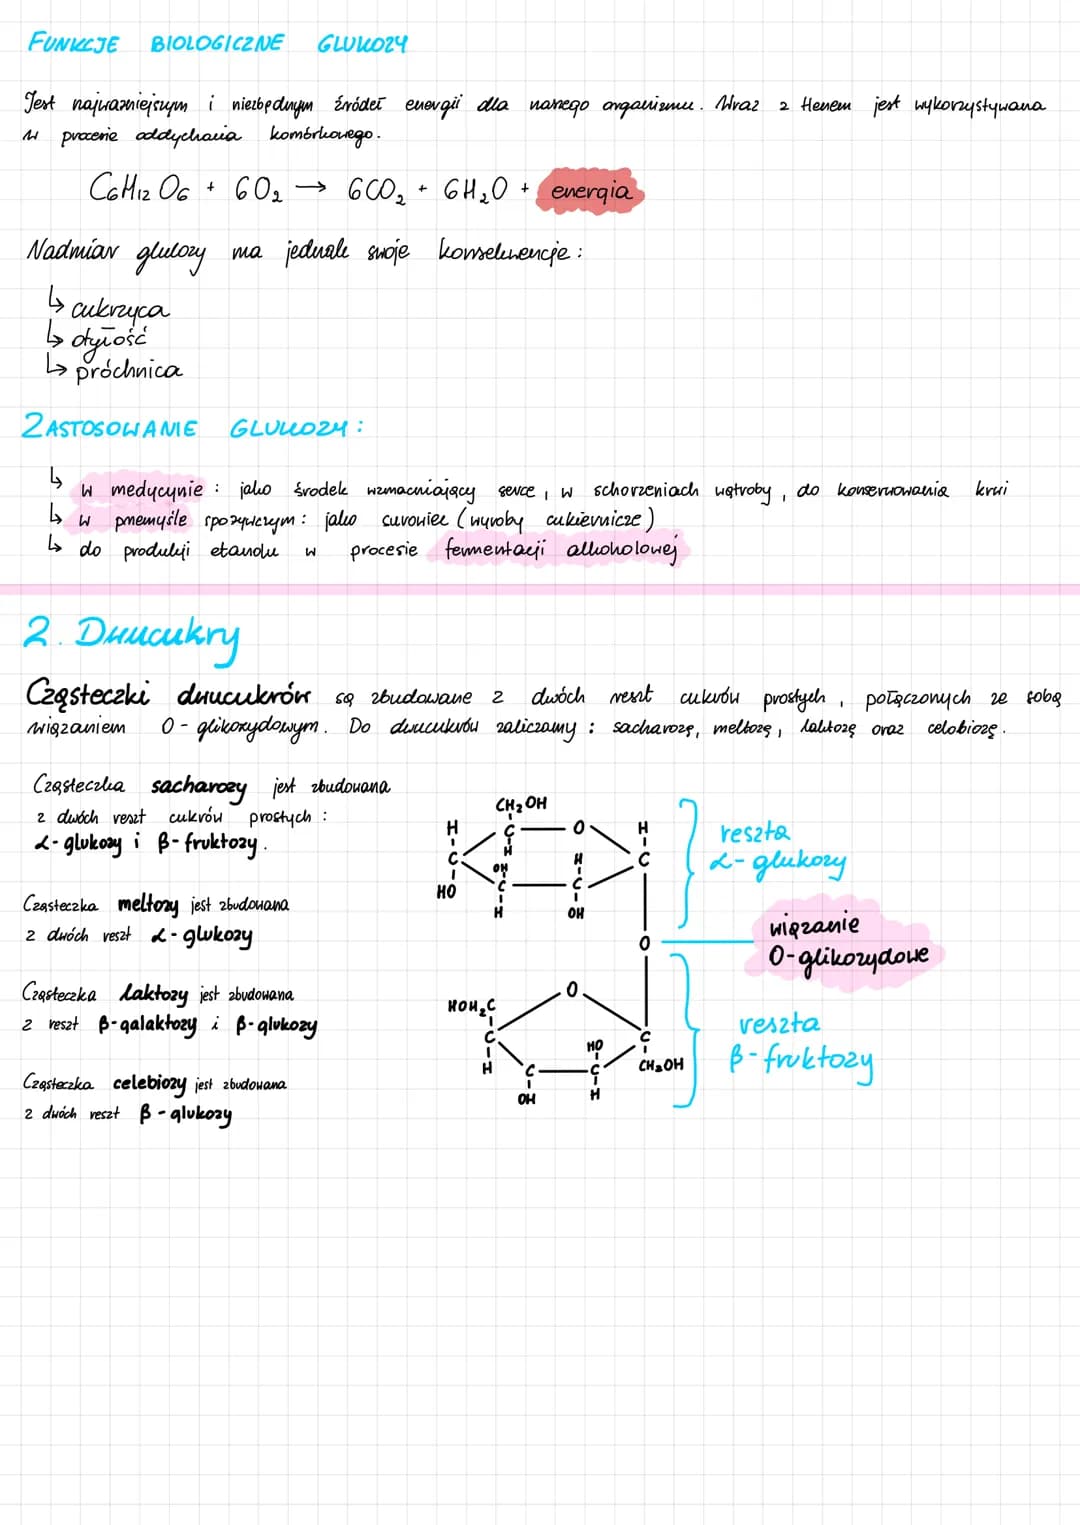 FUNKCJE BIOLOGICZNE GLUKOZY
Jest najważniejszym i niezbędnym źródeł energii dla naszego organizmu. Wraz z tlenem jest wykorzystywana
w procesie oddychania komórkowego.
C6H12O6 + 6O2 → 6CO2 + 6H2O + energia
Nadmiar glukozy ma jednak swoje konsekwencje :
↳ cukrzyca
↳ otyłość
↳ próchnica
ZASTOSOWANIE GLUKOZY :
↳ w medycynie : jako środek wzmacniający serce, w schorzeniach wątroby, do konserwowania krwi
↳ w przemyśle spożywczym : jako surowiec (wyroby cukiernicze)
↳ do produkcji etanolu w procesie fermentacji alkoholowej
2. Dwucukry
Cząsteczki dwucukrów są zbudowane z dwóch reszt cukrów prostych, połączonych ze sobą
wiązaniem O-glikozydowym. Do dwucukrów zaliczamy : sacharozę, maltozę, laktozę oraz celobiozę.
Cząsteczka sacharozy jest zbudowana
z dwóch reszt cukrów prostych :
α-glukozy i β-fruktozy.
Cząsteczka meltozy jest zbudowana
z dwóch reszt α-glukozy
Cząsteczka laktozy jest zbudowana
z reszt β-galaktozy i β-glukozy
Cząsteczka celebiozy jest zbudowana
z dwóch reszt β-glukozy
CH2OH
H C O H
C H H C
HO OH C C
H OH
O
HOH2C O
C HO C
H C C CH2OH
OH H
reszta
α-glukozy
wiązanie
O-glikozydowe
reszta
β-fruktozy